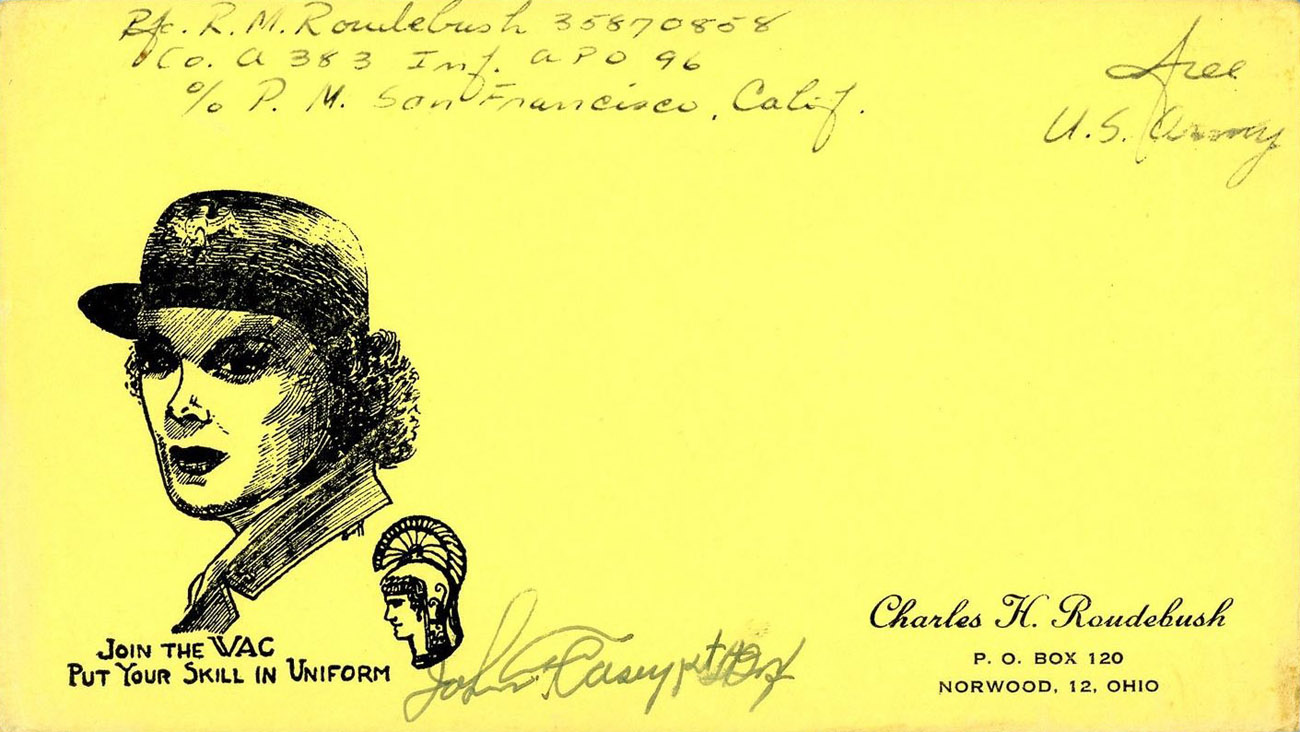 Pfc. R. M. Roudebush 35870858
Co. A 383 Inf. APO 96
% P. M. San Francisco, Calif.
Free
U.S. Army
JOIN THE WAC
PUT YOUR SKILL IN UNIFORM
John F. Casey
Charles H. Roudebush
P. O. BOX 120
NORWOOD, 12, OHIO